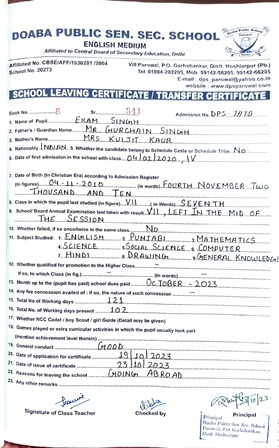 DOABA PUBLIC SEN. SEC. SCHOOL
ENGLISH MEDIUM
Affiliated to Central Board of Secondary Education, Delhi
Affiliated No. CBSE/AFF/1630281/2004
School No. 20273
Vill Parowal, P.O. Garhshankar, Distt. Hoshiarpur (Pb.)
Tel. 01884-282205, Mob. 99142-56205, 99142-66205
E-mail : dps_parowal@yahoo.co.in
website : www.dpsparowal.com
SCHOOL LEAVING CERTIFICATE / TRANSFER CERTIFICATE
Book No. 6 Sr. 511 Admission No. DPS-
1. Name of Pupil EKAM SINGH
2. Father's / Guardian Name MR GURCHAIN SINGH
3. Mother's Name MRS KULJIT KAUR
4. Nationality INDIAN 5. Whether the candidate belong to Schedule Caste or Schedule Tribe No
6. Date of first admission in the school with class 04/02/2020, IV
7. Date of Birth (In Christian Era) according to Admission Register
(In figures) 04-11-2010 (in words) FOURTH NOVEMBER TWO
THOUSAND AND TEN
8. Class in which the pupil last studied (in figure) VII (in Words) SEVENTH
9. School Board Annual Examination last taken with result VII, LEFT IN THE MID OF
THE SESSION
10. Whether failed, if so once/twice in the same class No
11. Subject Studied: 1. ENGLISH 2. PUNJABI 3. MATHEMATICS
4. SCIENCE 5. SOCIAL SCIENCE 6. COMPUTER
7. HINDI 8. DRAWING 9. GENERAL KNOWLEDGE
12. Whether qualified for promotion to the Higher Class
If so, to which Class (in Fig.) (in Words)
13. Month up to the (pupil has paid) school dues paid OCTOBER-2023
14. Any fee concession availed of : if so, the nature of such concession
15. Total No of Working days 121
16. Total No. of Working days present 102
17. Whether NCC Cadet / boy Scout / girl Guide (Detail may be given)
18. Games played or extra curricular activities in which the pupil usually took part
(mention achievement level therein)
19. General conduct GOOD
20. Date of application for certificate 19/10/2023
21. Date of issue of certificate 23/10/2023
22. Reasons for leaving the school GOING ABROAD
23. Any other remarks
Signature of Class Teacher
Checked by
Principal
Principal
Doaba Public Sen. Sec. School
Parowal, P.O. Garhshankar,
Distt. Hoshiarpur